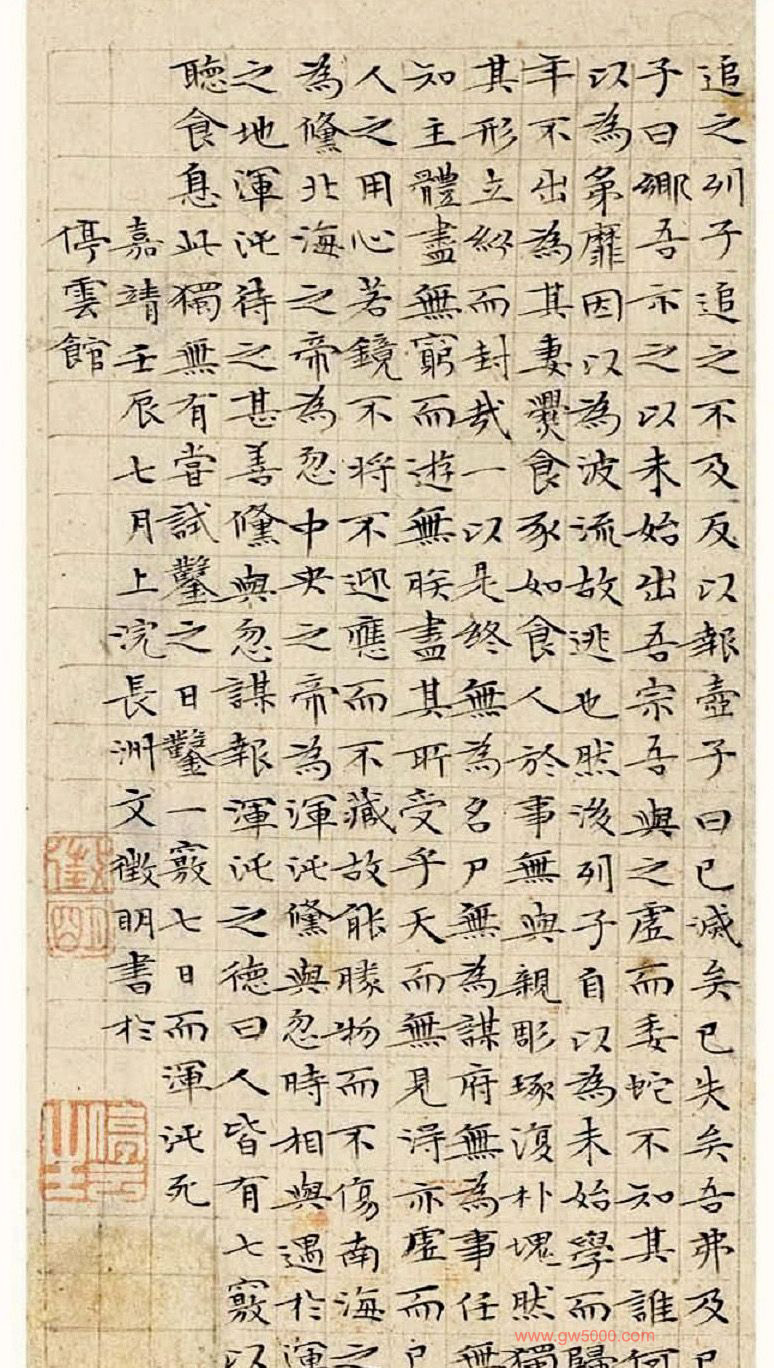 追之列子追之不及反以報壺子曰已滅矣已失矣吾弗及已
子曰鄉吾示之以未始出吾宗吾與之虛而委蛇不知其誰何
以為弟靡因以為波流故逃也然後列子自以為未始學而歸
年不出為其妻爨食豕如食人於事無與親彫琢復朴塊然獨
其形立紛而封哉一以是終無為名尸無為謀府無為事任無
知主體盡無窮而遊無朕盡其所受乎天而無見得亦虛而已
人之用心若鏡不將不迎應而不藏故能勝物而不傷南海之
為儵北海之帝為忽中央之帝為渾沌儵與忽時相與遇於渾
之地渾沌待之甚善儵與忽謀報渾沌之德曰人皆有七竅以
聽食息此獨無有嘗試鑿之日鑿一竅七日而渾沌死
嘉靖壬辰七月上浣長洲文徵明書於
停雲館
徵明
www.gw5000.com